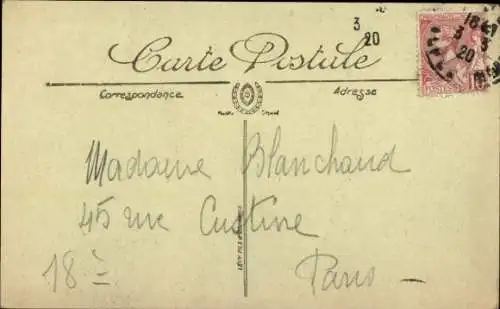 3
20
18
3
20
Carte Postale
Correspondance
Adresse
Madame Blanchaud
45 rue Custine
18è
Paris